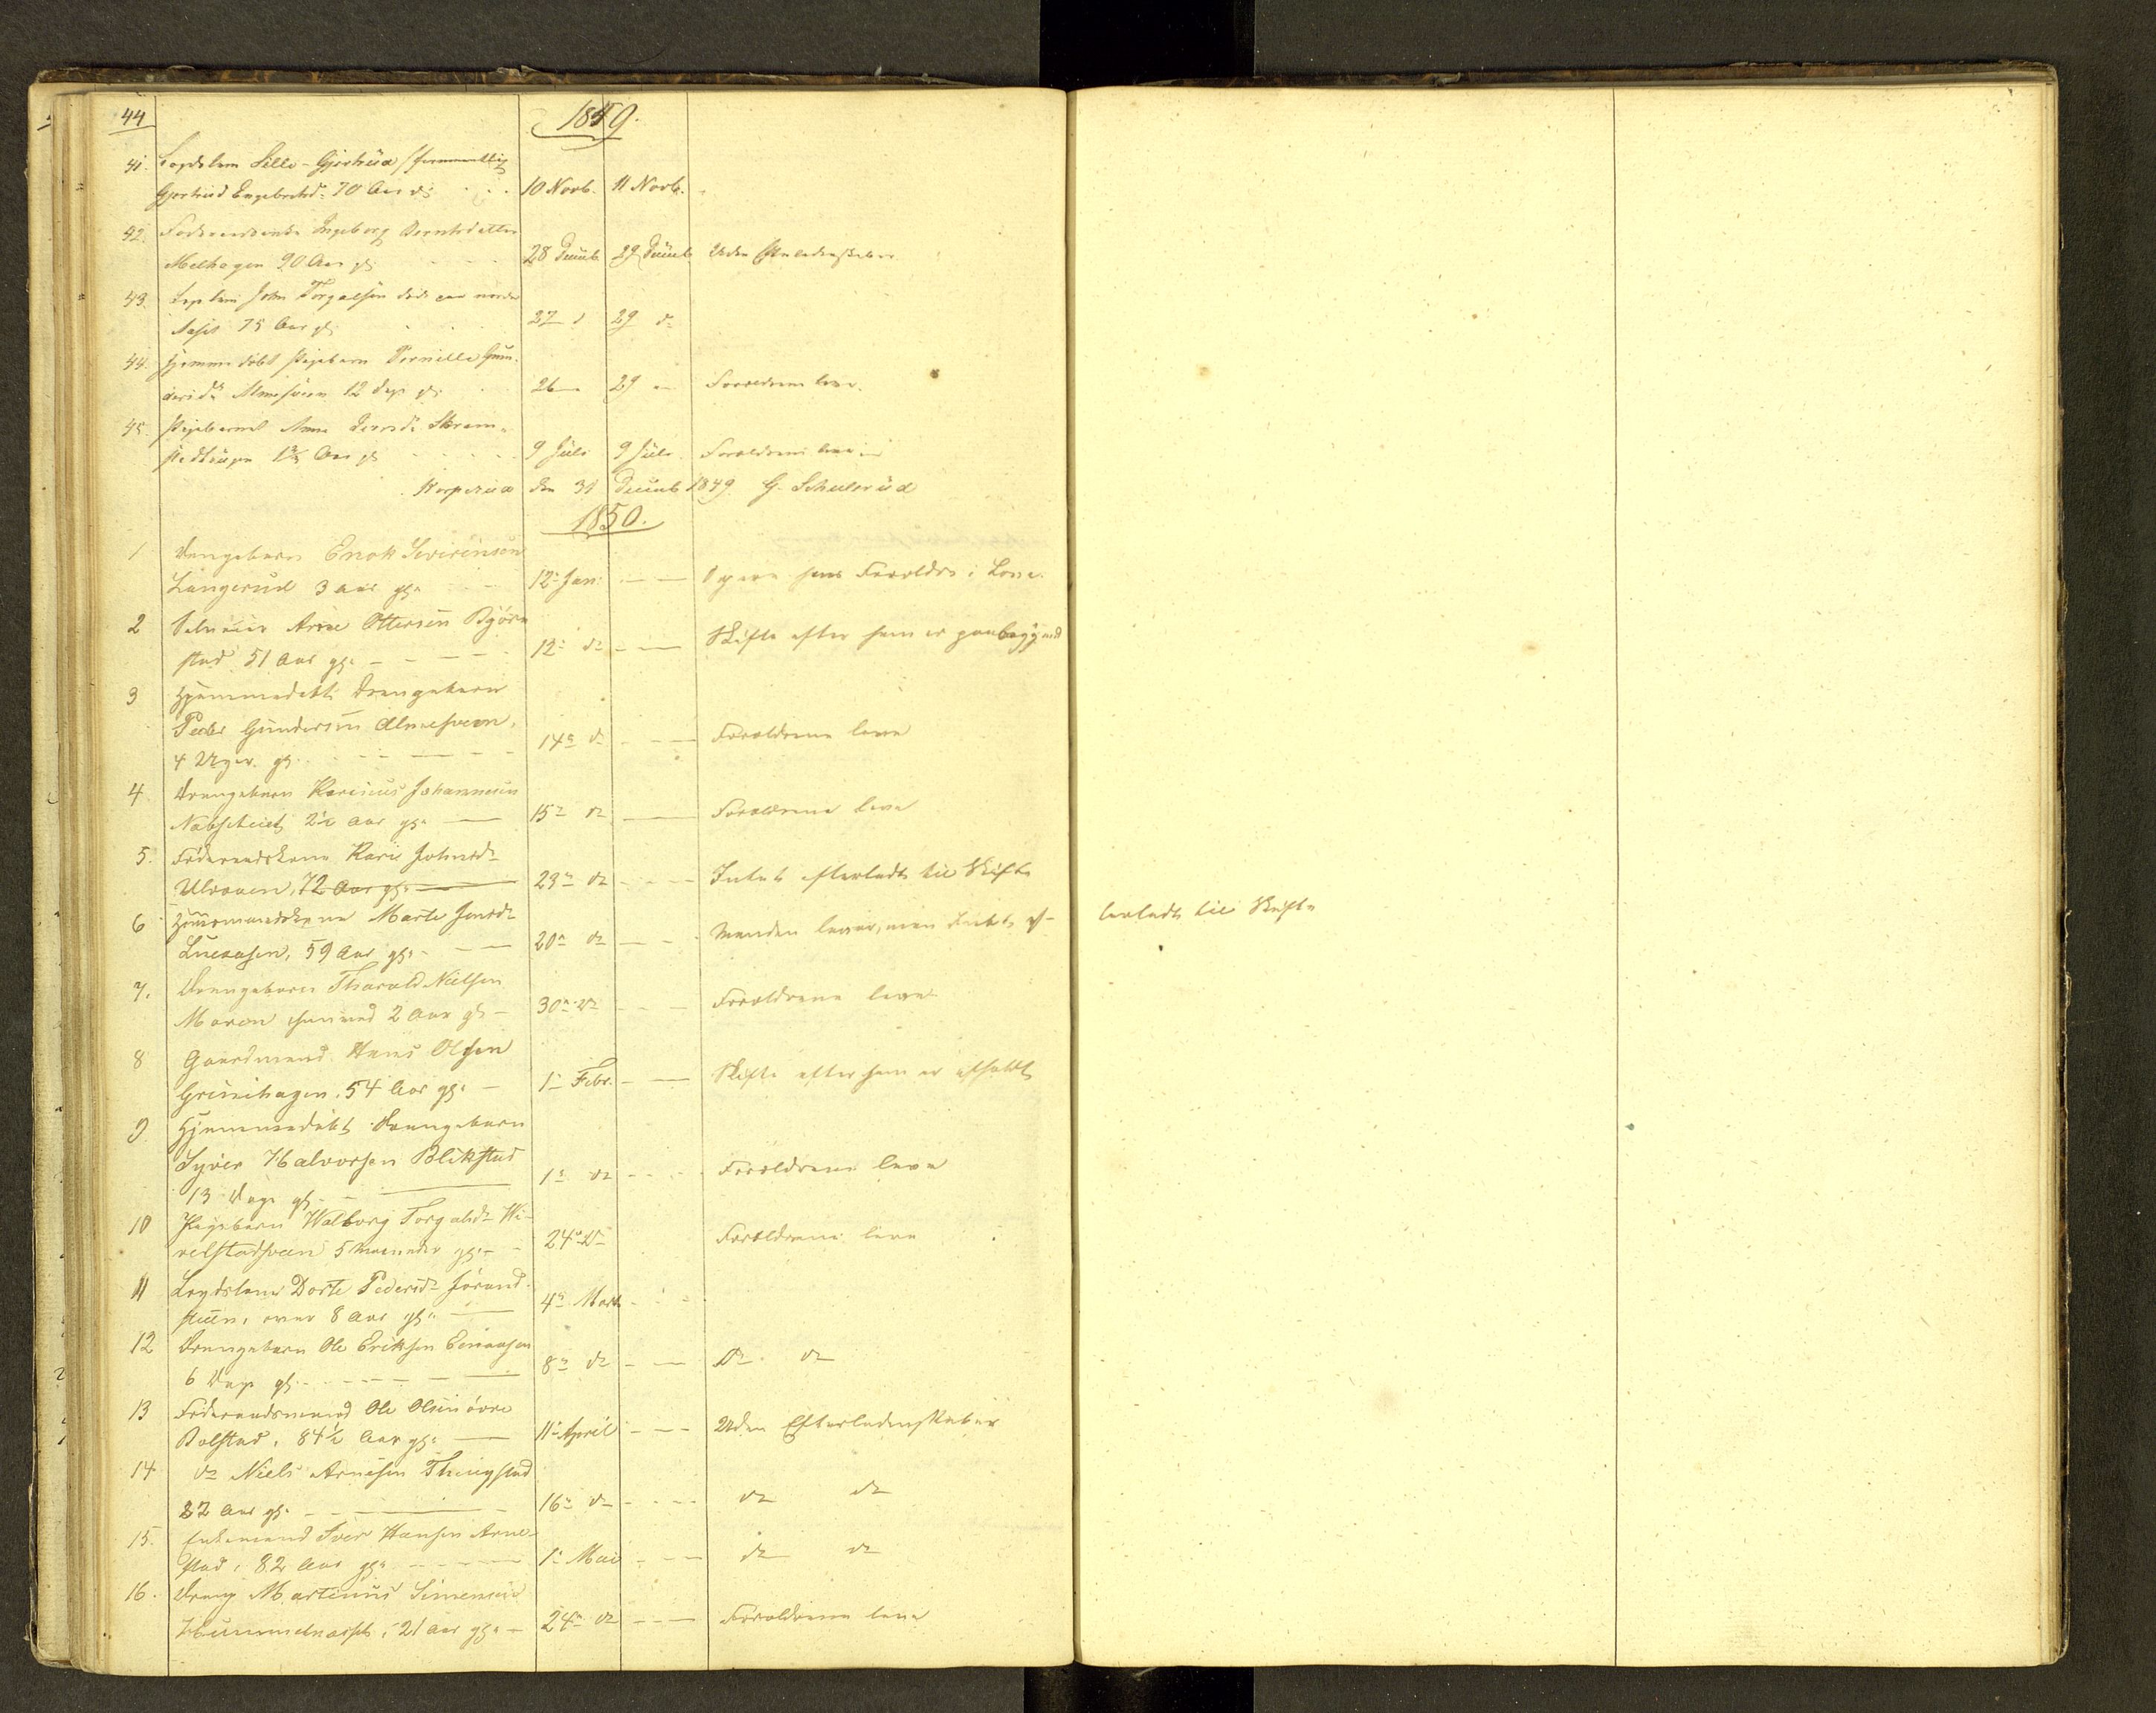 44
1849.
41. Lægdslem Lille-Gjertrüd /
Gjertrüd Engebretsd. 70 Aar gl: 10 Novb. 11 Novb.
42. Ingeborg Berntsdatter
Melhagen 90 Aar gl. 28 Decmb 29 Decmb Uden Efterladenskaber
43. Lægdslem John Torgalsen
75 Aar gl. 27 d 29 d
44. Hjemmedøbt Pigebarn Pernille Gun-
dersd. Almesveen 12 Dage gl. 26 29 Forældrene leve
45. Pigebarnet Anne Iversd. Skram-
stadstuen 1½ Aar gl 9 Juli 9 Juli Forældrene leve
Korperud den 31 Decmb 1849 G. Schulerüd
1850.
1 Drengebarn Enok Severinsen
Langerud 3 Aar gl. 12 Jan: — — hans Forældre i Løse.
2 Arne Ottersen Bjørn
stad 51 Aar gl. 12 d — — Skifte efter ham er paabegyndt
3 Hjemmedøbt Drengebarn
Peder Gündersen Almesveen,
4 Uger gl. 14 d — — Forældrene leve
4 Drengebarn Karinius Johannesen
2½ Aar gl. 15 d — Forældrene leve
5. Føderaadskone Kari Johnsd.
Ulvøuen, 72 Aar gl. 23 d — Intet efterladt til Skifte
6 Huusmandskone Marte Jensd.
59 Aar gl. 20 d — Manden lever, men Intet ef-
terladt til Skifte
7. Drengebarn Tharald Nielsen
Moren 2 Aar gl 30 d — Forældrene leve
8 Gaardmand Hans Olsen
Grünehagen, 54 Aar gl. 1 Febr. — Skifte efter ham er afholdt
9 Hjemmedøbt Drengebarn
Syver Halvorsen Blikstad
13 Dage gl. 1 d — Forældrene leve
10 Pigebarn Walborg Torgalsd. Wi-
velstadsveen 5 Maaneder gl. 24 d Forældrene leve
11 Lægdslem Dorte Pedersd.
over 8 Aar gl. 4 Marts
12 Drengebarn Ole Eriksen
6 Dage gl. 8 d — D. d
13 Føderaadsmand Ole Olsen øvre
Bolstad, 84½ Aar gl. 11 April — Uden Efterladenskaber
14 d Niels Arnesen Thingstad
82 Aar gl. 16 d — d d
15. Enkemand Iver Hansen Arne-
stad, 82 Aar gl. 1 Mai — d d
16. Dreng Martinus Simensen
21 Aar gl. 24 d — Forældrene leve